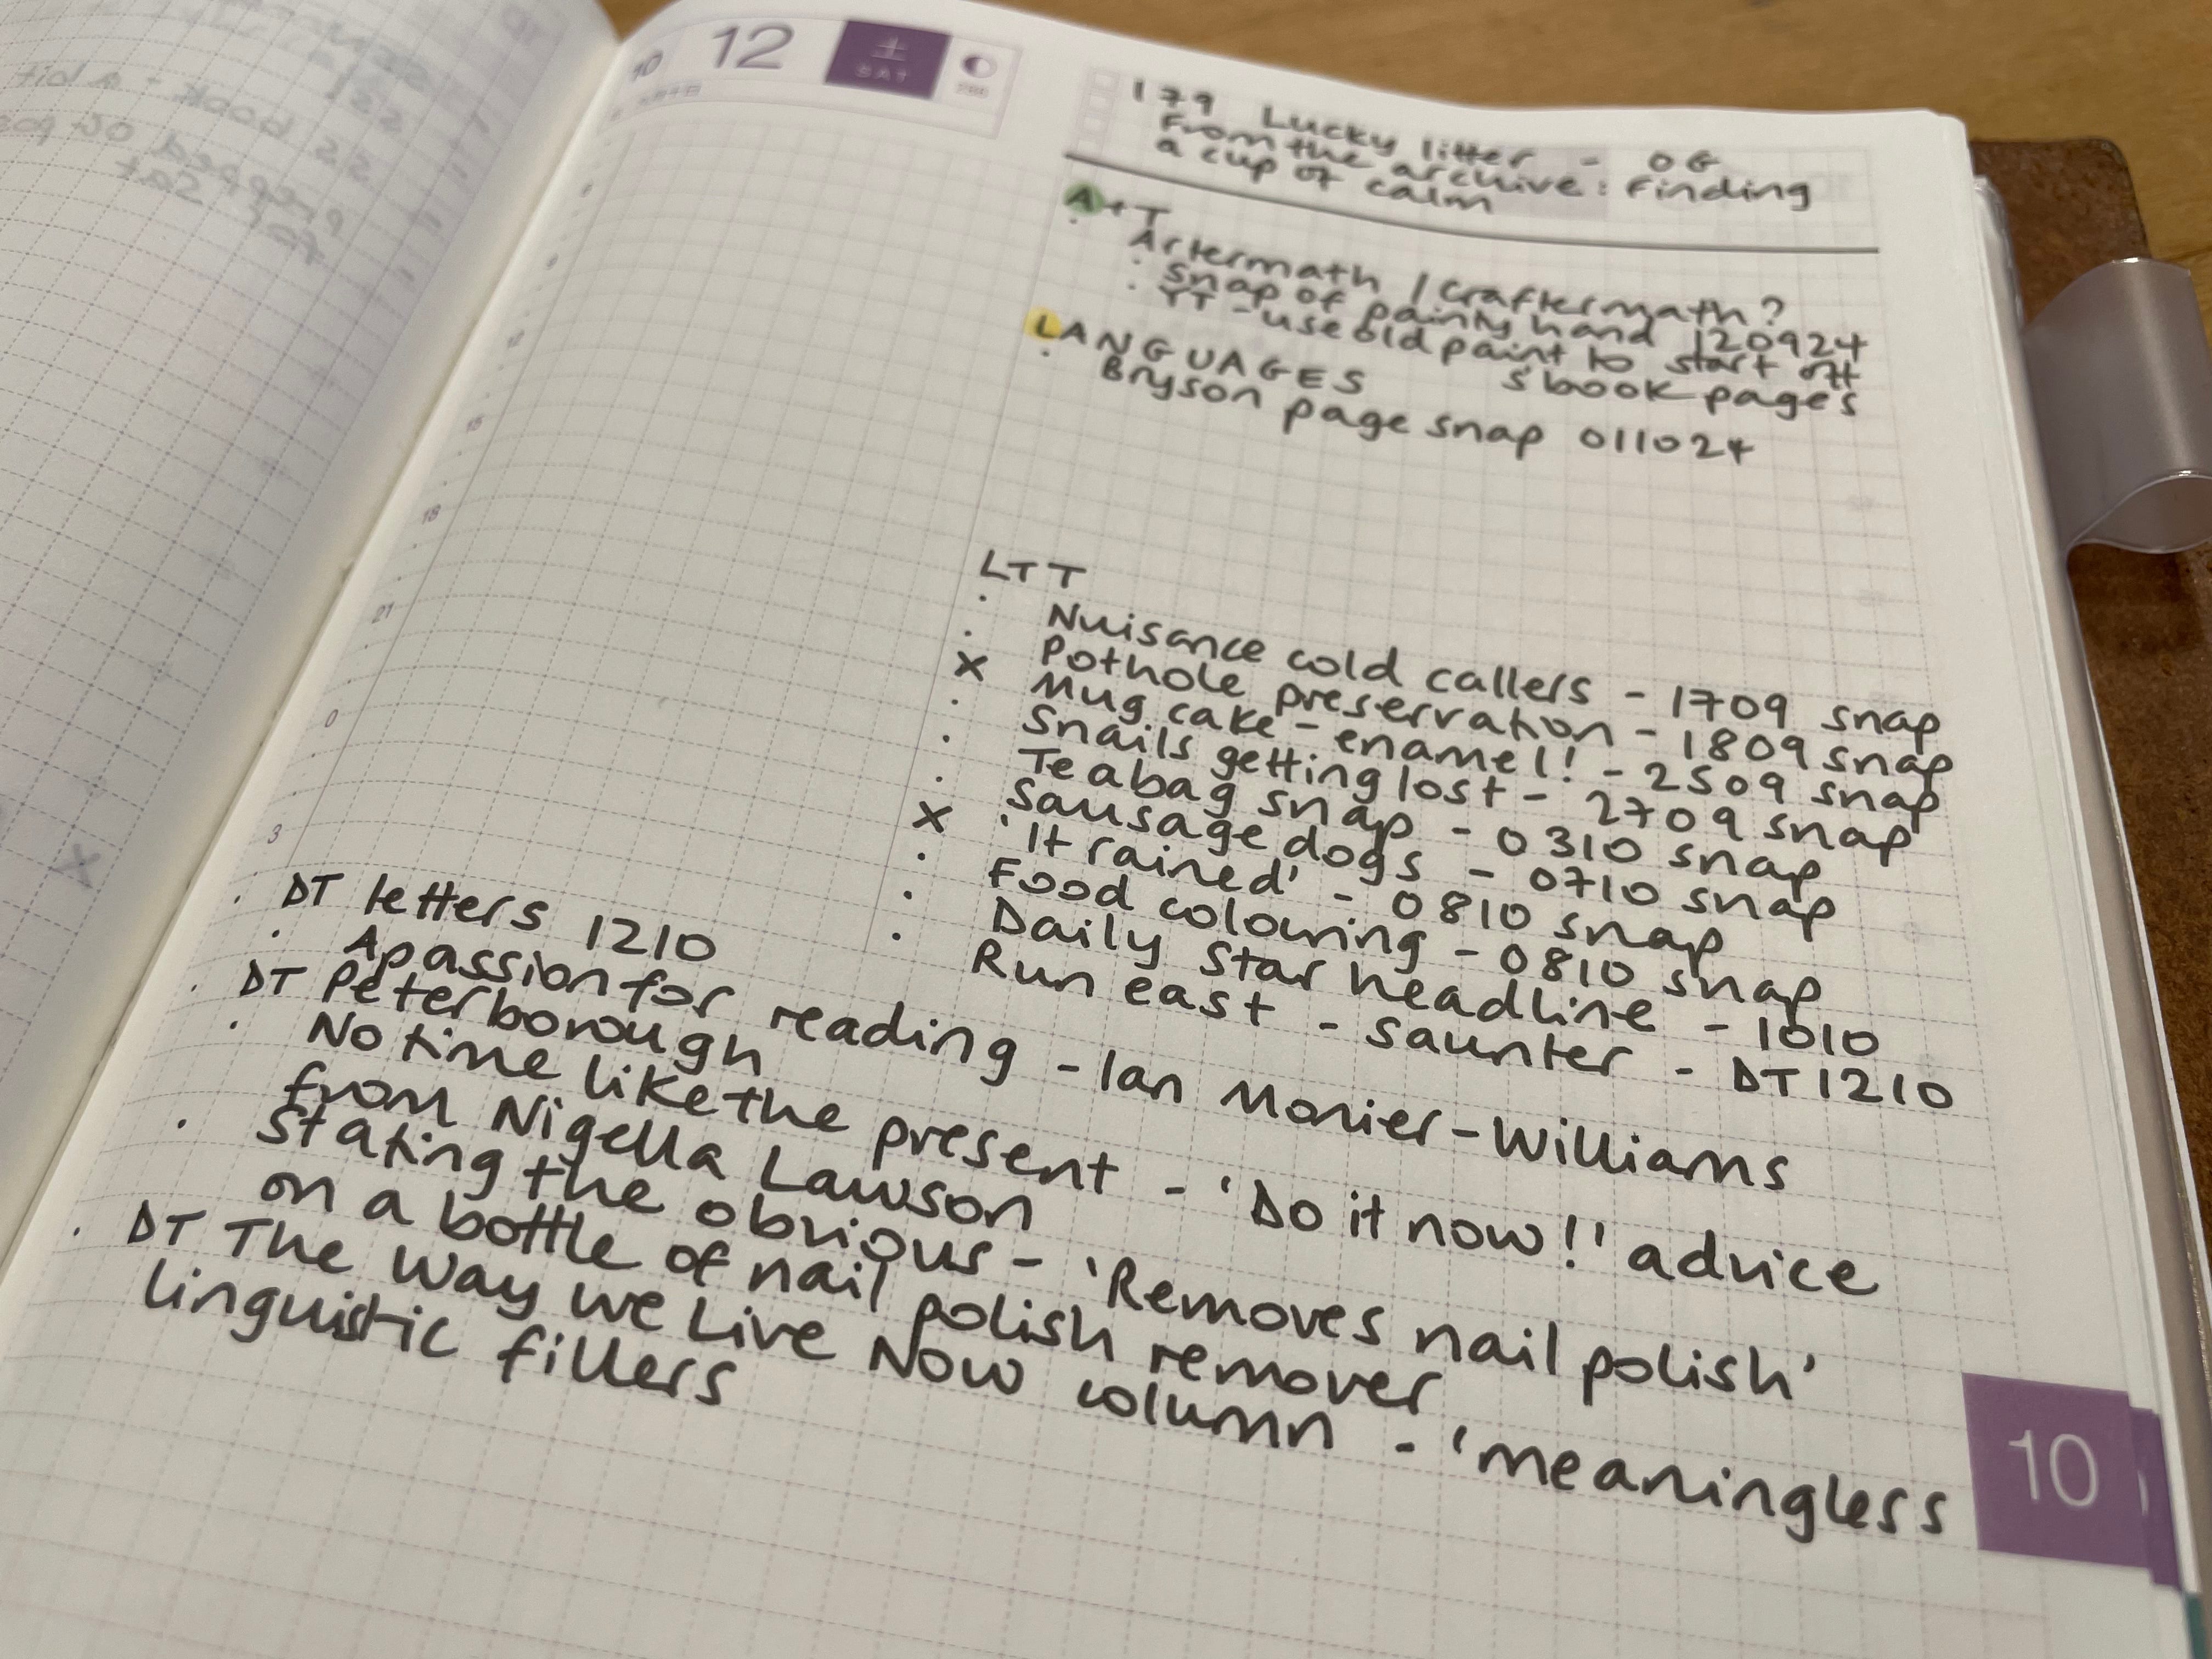 10 12 土 SAT
179 Lucky litter - OG
From the archive: Finding
a cup of calm
A+T
Artermath / Craftermath?
snap of painty hand 120924
YT - use old paint to start off
s'book pages
LANGUAGES
Bryson page snap 011024
12
15
18
21
0
3
LTT
· Nuisance cold callers - 1709 snap
· Pothole preservation - 1809 snap
x Mug cake - enamel! - 2509 snap
· Snails getting lost - 2709 snap
· Teabag snap - 0310 snap
· Sausage dogs - 0710 snap
x 'It rained' - 0810 snap
· Food colouring - 0810 snap
· Daily Star headline - 1010
· Run east - saunter - DT 1210
· DT letters 1210
· A passion for reading - Ian Monier-Williams
· DT Peterborough
· No time like the present - 'Do it now!' advice
from Nigella Lawson
· Stating the obvious - 'Removes nail polish'
on a bottle of nail polish remover
· DT The Way We Live Now column - 'meaningless
linguistic fillers
10